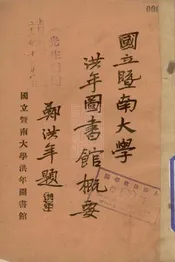 國立暨南大學
洪年圖書館概要
鄭洪年題
國立暨南大學洪年圖書館